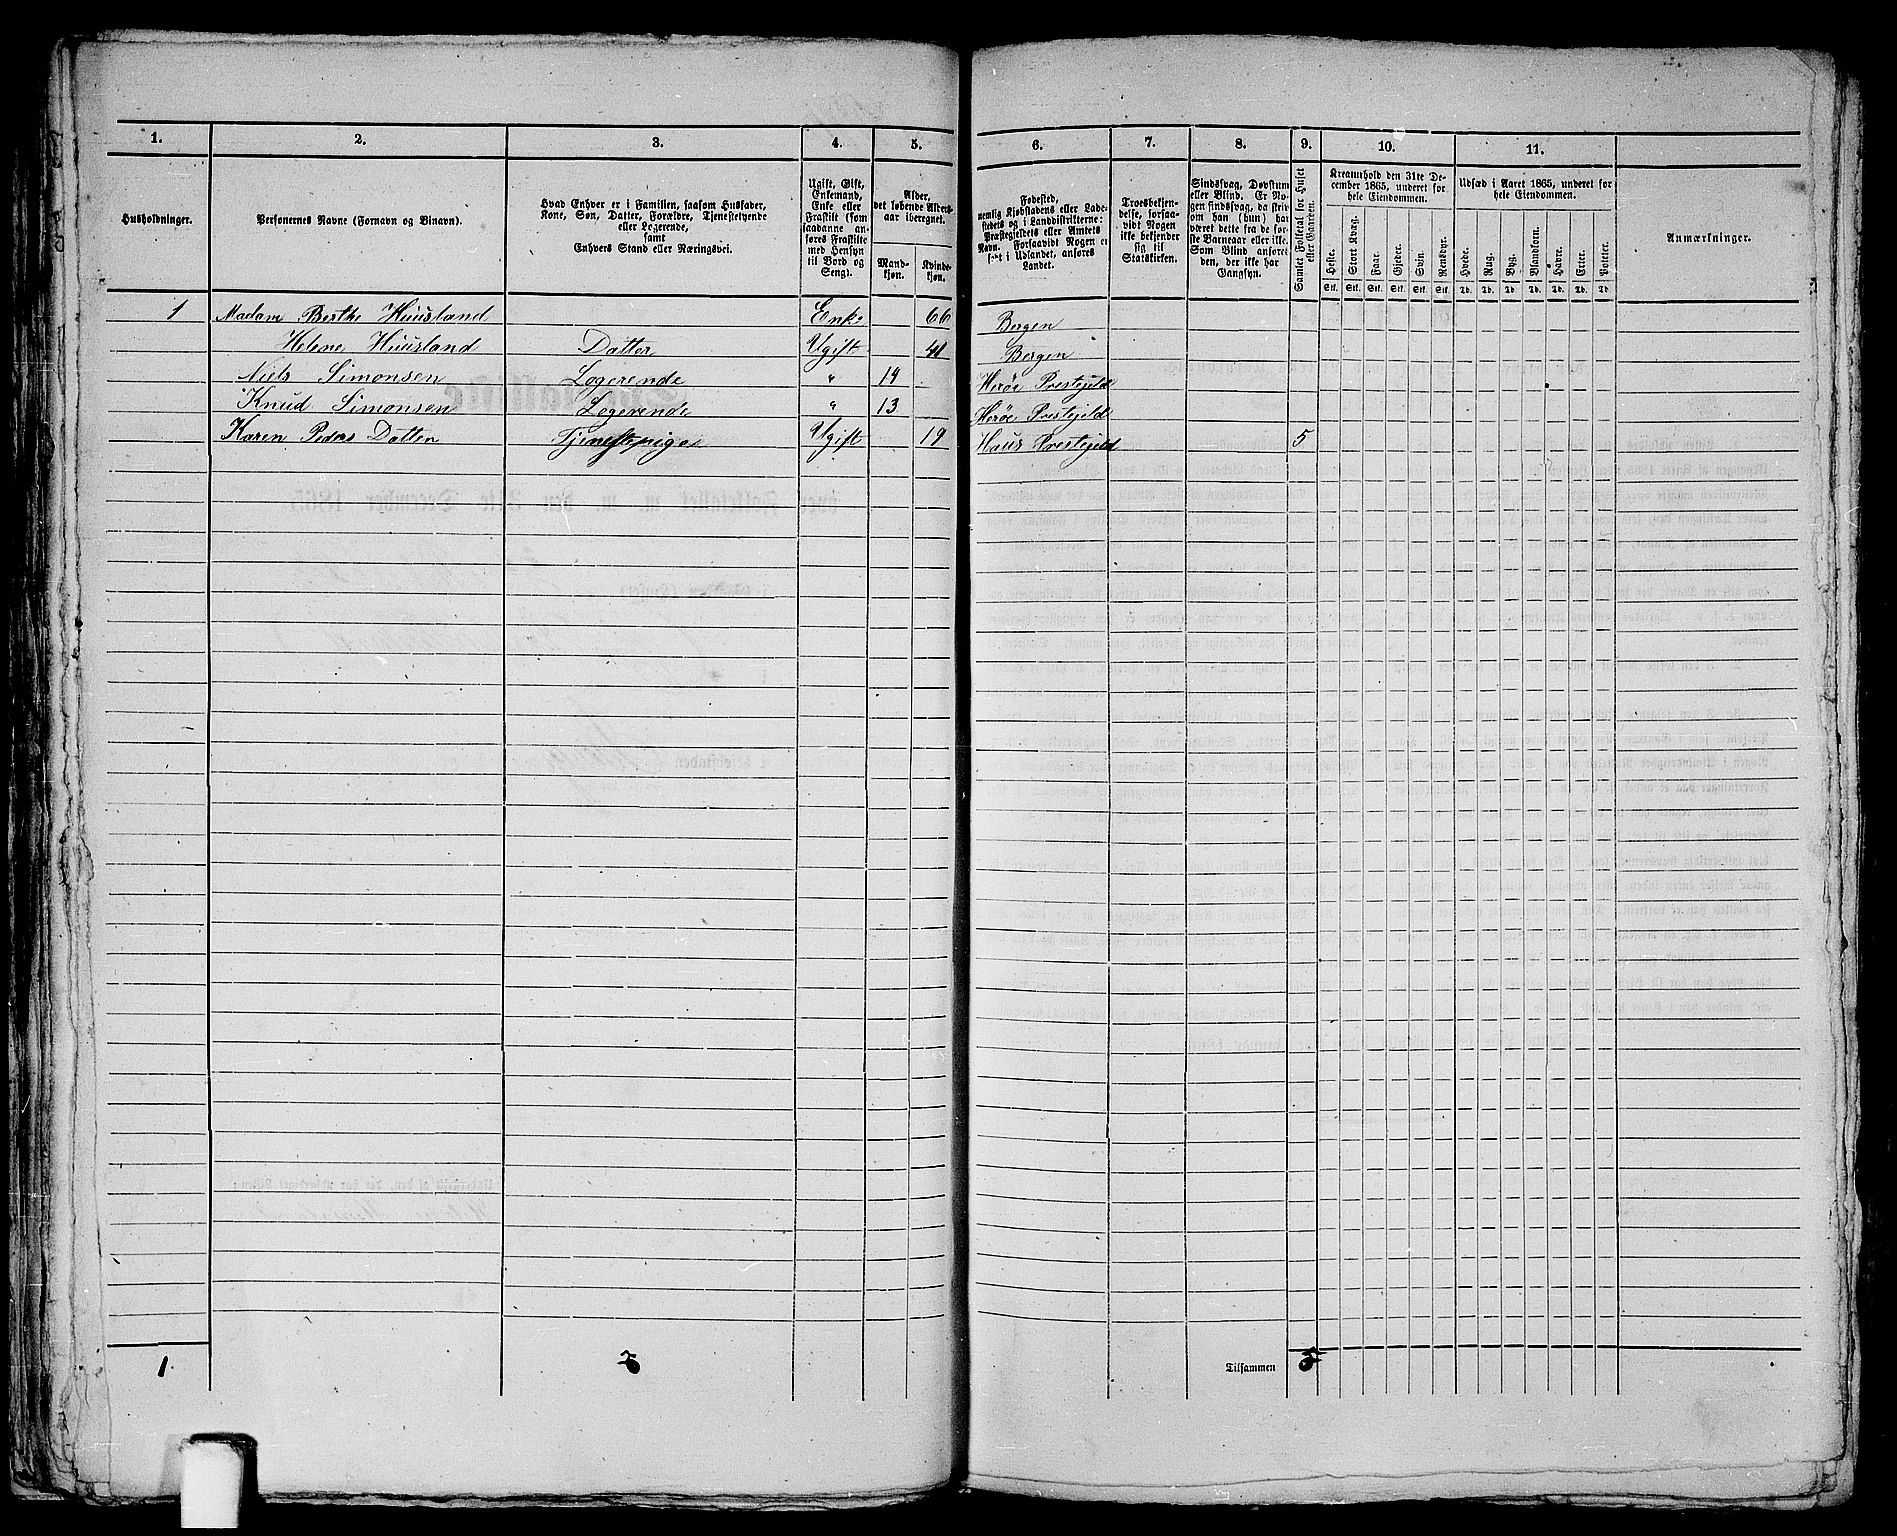 1. 2. 3. 4. 5. 6. 7. 8. 9. 10. 11.
Husholdninger.
Personernes Navne (Fornavn og Tilnavn).
Hvad Enhver er i Familien, saasom Husfader,
Kone, Søn, Datter, Forældre, Tjenestetyende
eller Logerende,
samt
Enhvers Stand eller Næringsvei.
Ugift, Gift,
Enkemand,
Enke eller
Fraskilt (som
saadanne an-
føres Fraskilte
med Hensyn
til Bord og
Seng).
Alder,
det løbende Alders-
aar iberegnet.
Mand-
kjøn.
Kvinde-
kjøn.
Fødested,
nemlig Kjøbstadens eller Lade-
stedets og i Landdistrikterne:
Præstegjeldets eller Amtets
Navn. Forsaavidt Nogen er
født i Udlandet, anføres
Landet.
Troesbekjen-
delse, forsaa-
vidt Nogen
ikke bekjender
sig til
Statskirken.
Sindssvag, Døvstum
eller Blind. Er No-
gen sindssvag, da skriv
om han (hun) har
været dette fra de før-
ste Barneaar eller ikke.
Som Blind anføres
den, der ikke har
Gangsyn.
Samlet Folketal for Huset
eller Gaarden.
Kreaturhold den 31te De-
cember 1865, underet for
hele Eiendommen.
Heste. Stort Kvæg. Faar. Gjeder. Svin. Rensdyr.
Stk. Stk. Stk. Stk. Stk. Stk.
Udsæd i Aaret 1865, underet for
hele Eiendommen.
Hvede. Rug. Byg. Blandkorn. Havre. Erter. Poteter.
Td. Td. Td. Td. Td. Td. Td.
Anmærkninger.
1 Madam Berthe Huusland Enke 66 Bergen
Helene Huusland Datter Ugift 41 Bergen
Niels Simonsen Logerende " 14 Heröe Prestejeld
Knud Simonsen Logerende " 13 Heröe Prestejeld
Karen Peders Datter Tjenestepige Ugift 19 Haus Prestejeld 5
1. Tilsammen